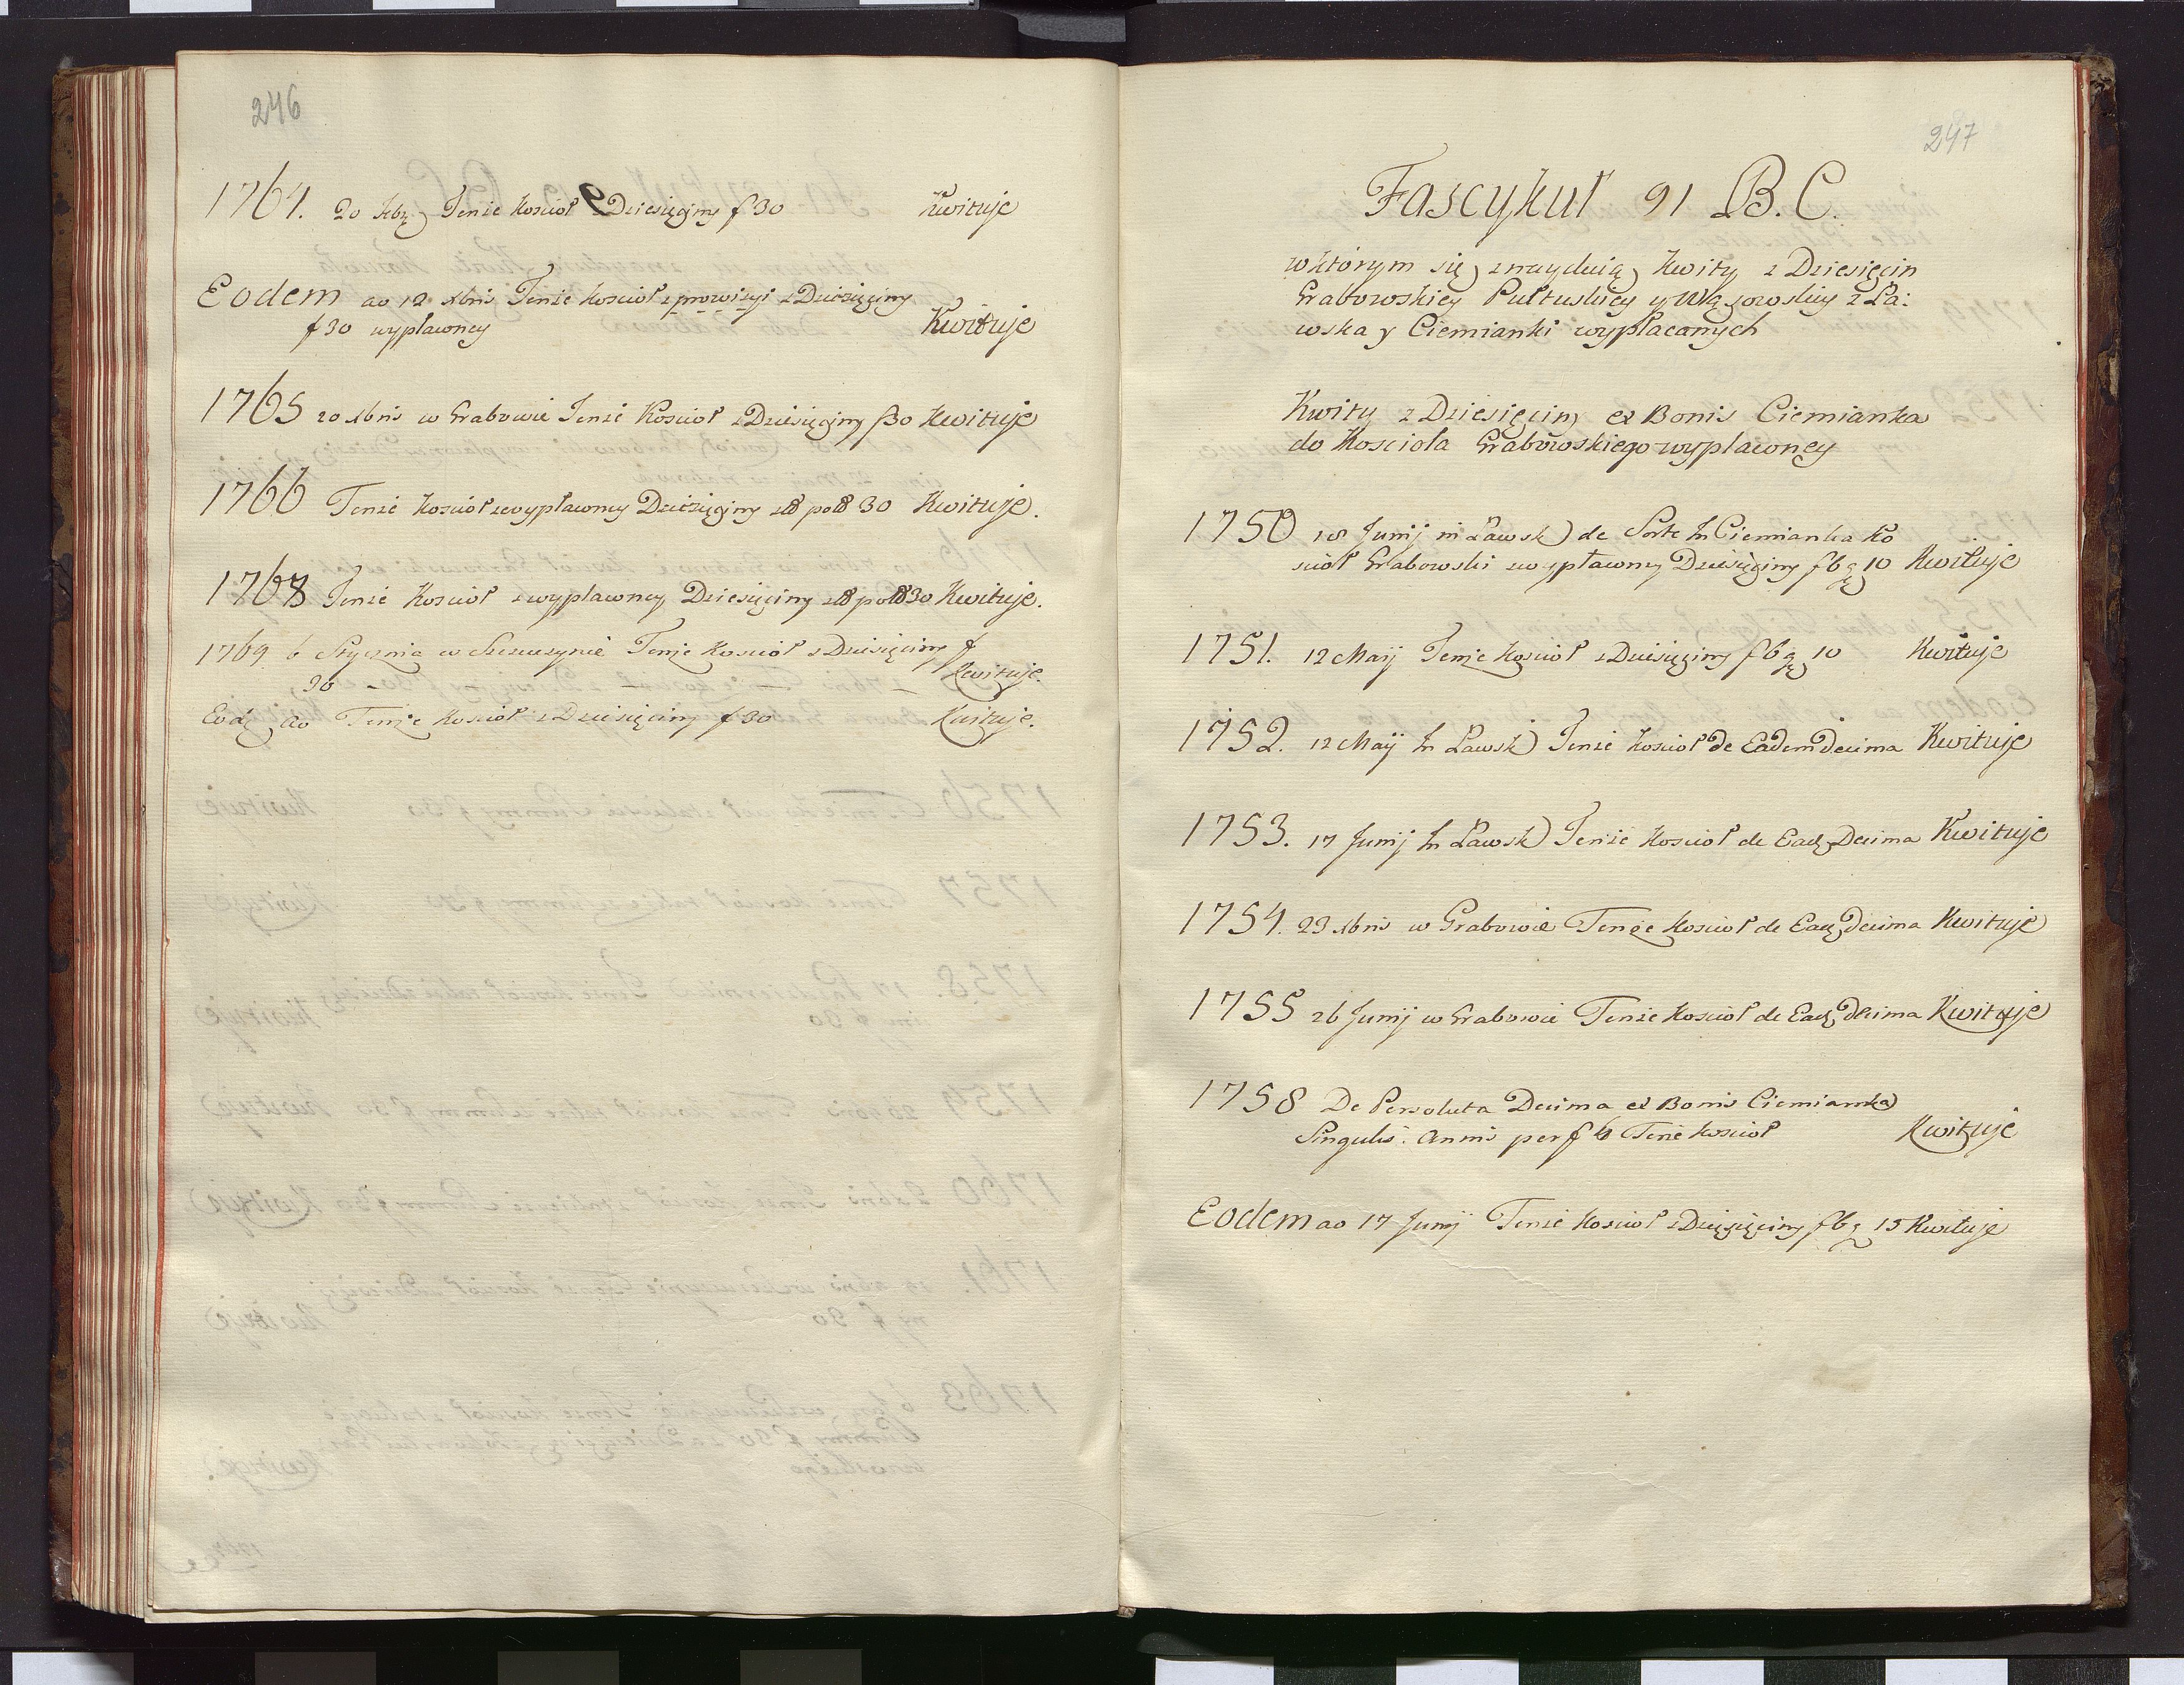 246
1764. 20 Febr Tenże Kosciol z Dziesięciny f 30 Kwituje
Eodem ao 12 Xbris Tenże Kosciol z prowizyi z Dziesięciny
f 30 wypłaconey Kwituje
1765 20 Xbris w Grabowie Tenże Kosciol z Dziesięciny f 30 Kwituje
1766 Tenże Kosciol z wypłaconey Dziesięciny Kwituje.
1768 Tenże Kosciol z wypłaconey Dziesięciny Kwituje.
1769 6 Stycznia w Szczuczynie Tenże Kosciol z Dziesięciny f
30 Kwituje.
Eodę ao Tenże Kosciol z Dziesięciny f 30 Kwituje.
247
Fascykuł 91 B. C.
w którym się znayduią Kwity z Dziesięcin
Grabowskiey Pułtuskiey y Wąsowskiey z Ła:
wska y Ciemianki wypłaconych
Kwity z Dziesięciny ex Bonis Ciemianka
do Kosciola Grabowskiego wyplaconey
1750 18 Junij in Ławsk de Sorte In Ciemianka Ko
sciol Grabowski z wypłaconey Dziesięciny f 6 g 10 Kwituje
1751. 12 Maij Tenże Kosciol z Dziesięciny f 6 g 10 Kwituje
1752. 12 Maij In Ławsk Tenże Kosciol De Eadem Decima Kwituje
1753. 17 Junij In Ławsk Tenże Kosciol de Eadę Decima Kwituje
1754. 23 Xbris w Grabowie Tenże Kosciol de Eadę Decima Kwituje
1755 26 Junij w Grabowie Tenże Kosciol de Eadę Decima Kwituje
1758 De Persoluta Decima ex Bonis Ciemianka
Singulis Annis per f 6 Tenże Kosciol Kwituje
Eodem ao 17 Junij Tenże Kosciol z Dziesięciny f 6 g 15 Kwituje